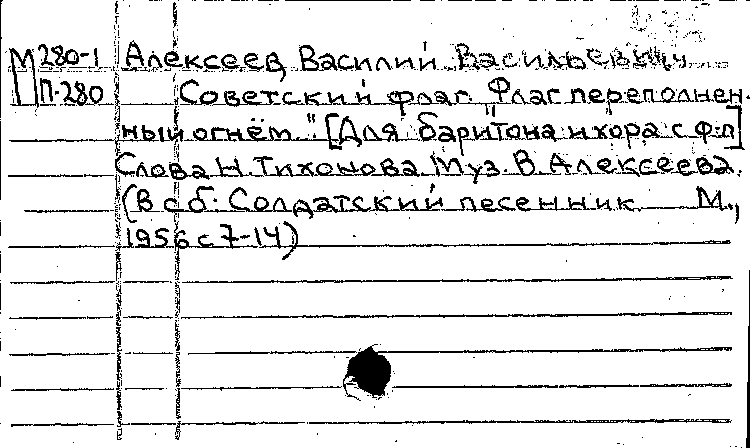 М 280-1 Алексеев, Василий Васильевич
П-280 Советский флаг. "Флаг переполнен-
ный огнём." [Для баритона и хора с ф-п]
Слова Н. Тихонова. Муз. В. Алексеева.
(В сб: Солдатский песенник. М.,
1956 с 7-14)